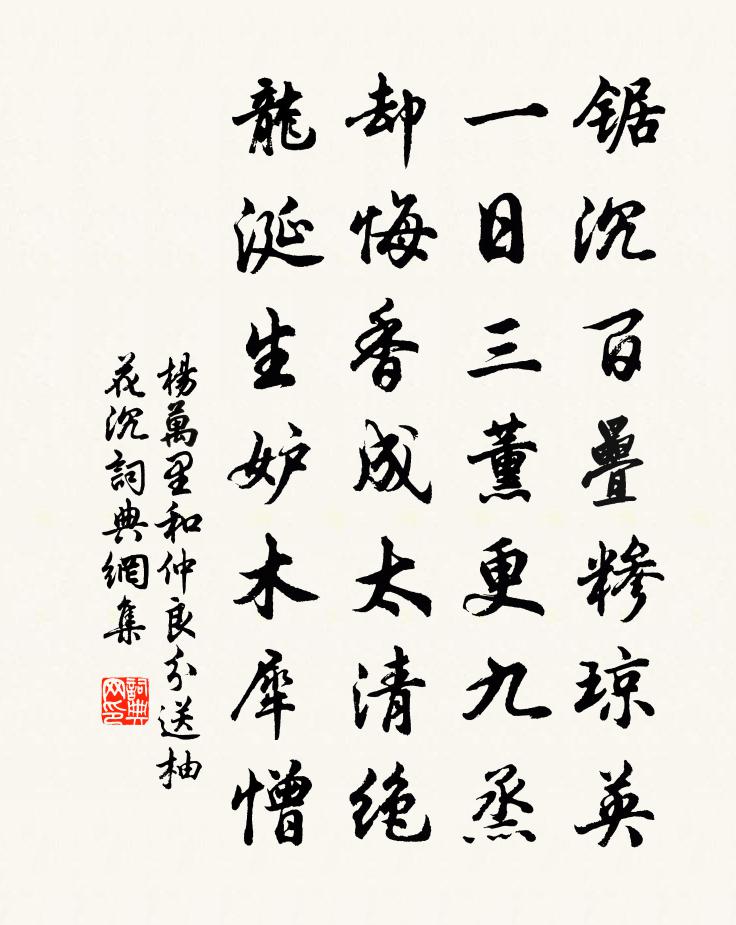 锯沉百疊糁琼英
一日三薰更九烝
却悔香成太清绝
龍涎生妒木犀憎
楊萬里和仲良分送柚
花沉詞典網集
詞典网印